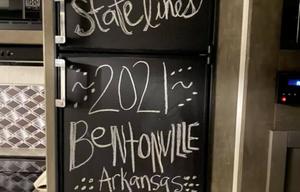 State Lines
~ 2021 ~
BENTONVILLE
Arkansas